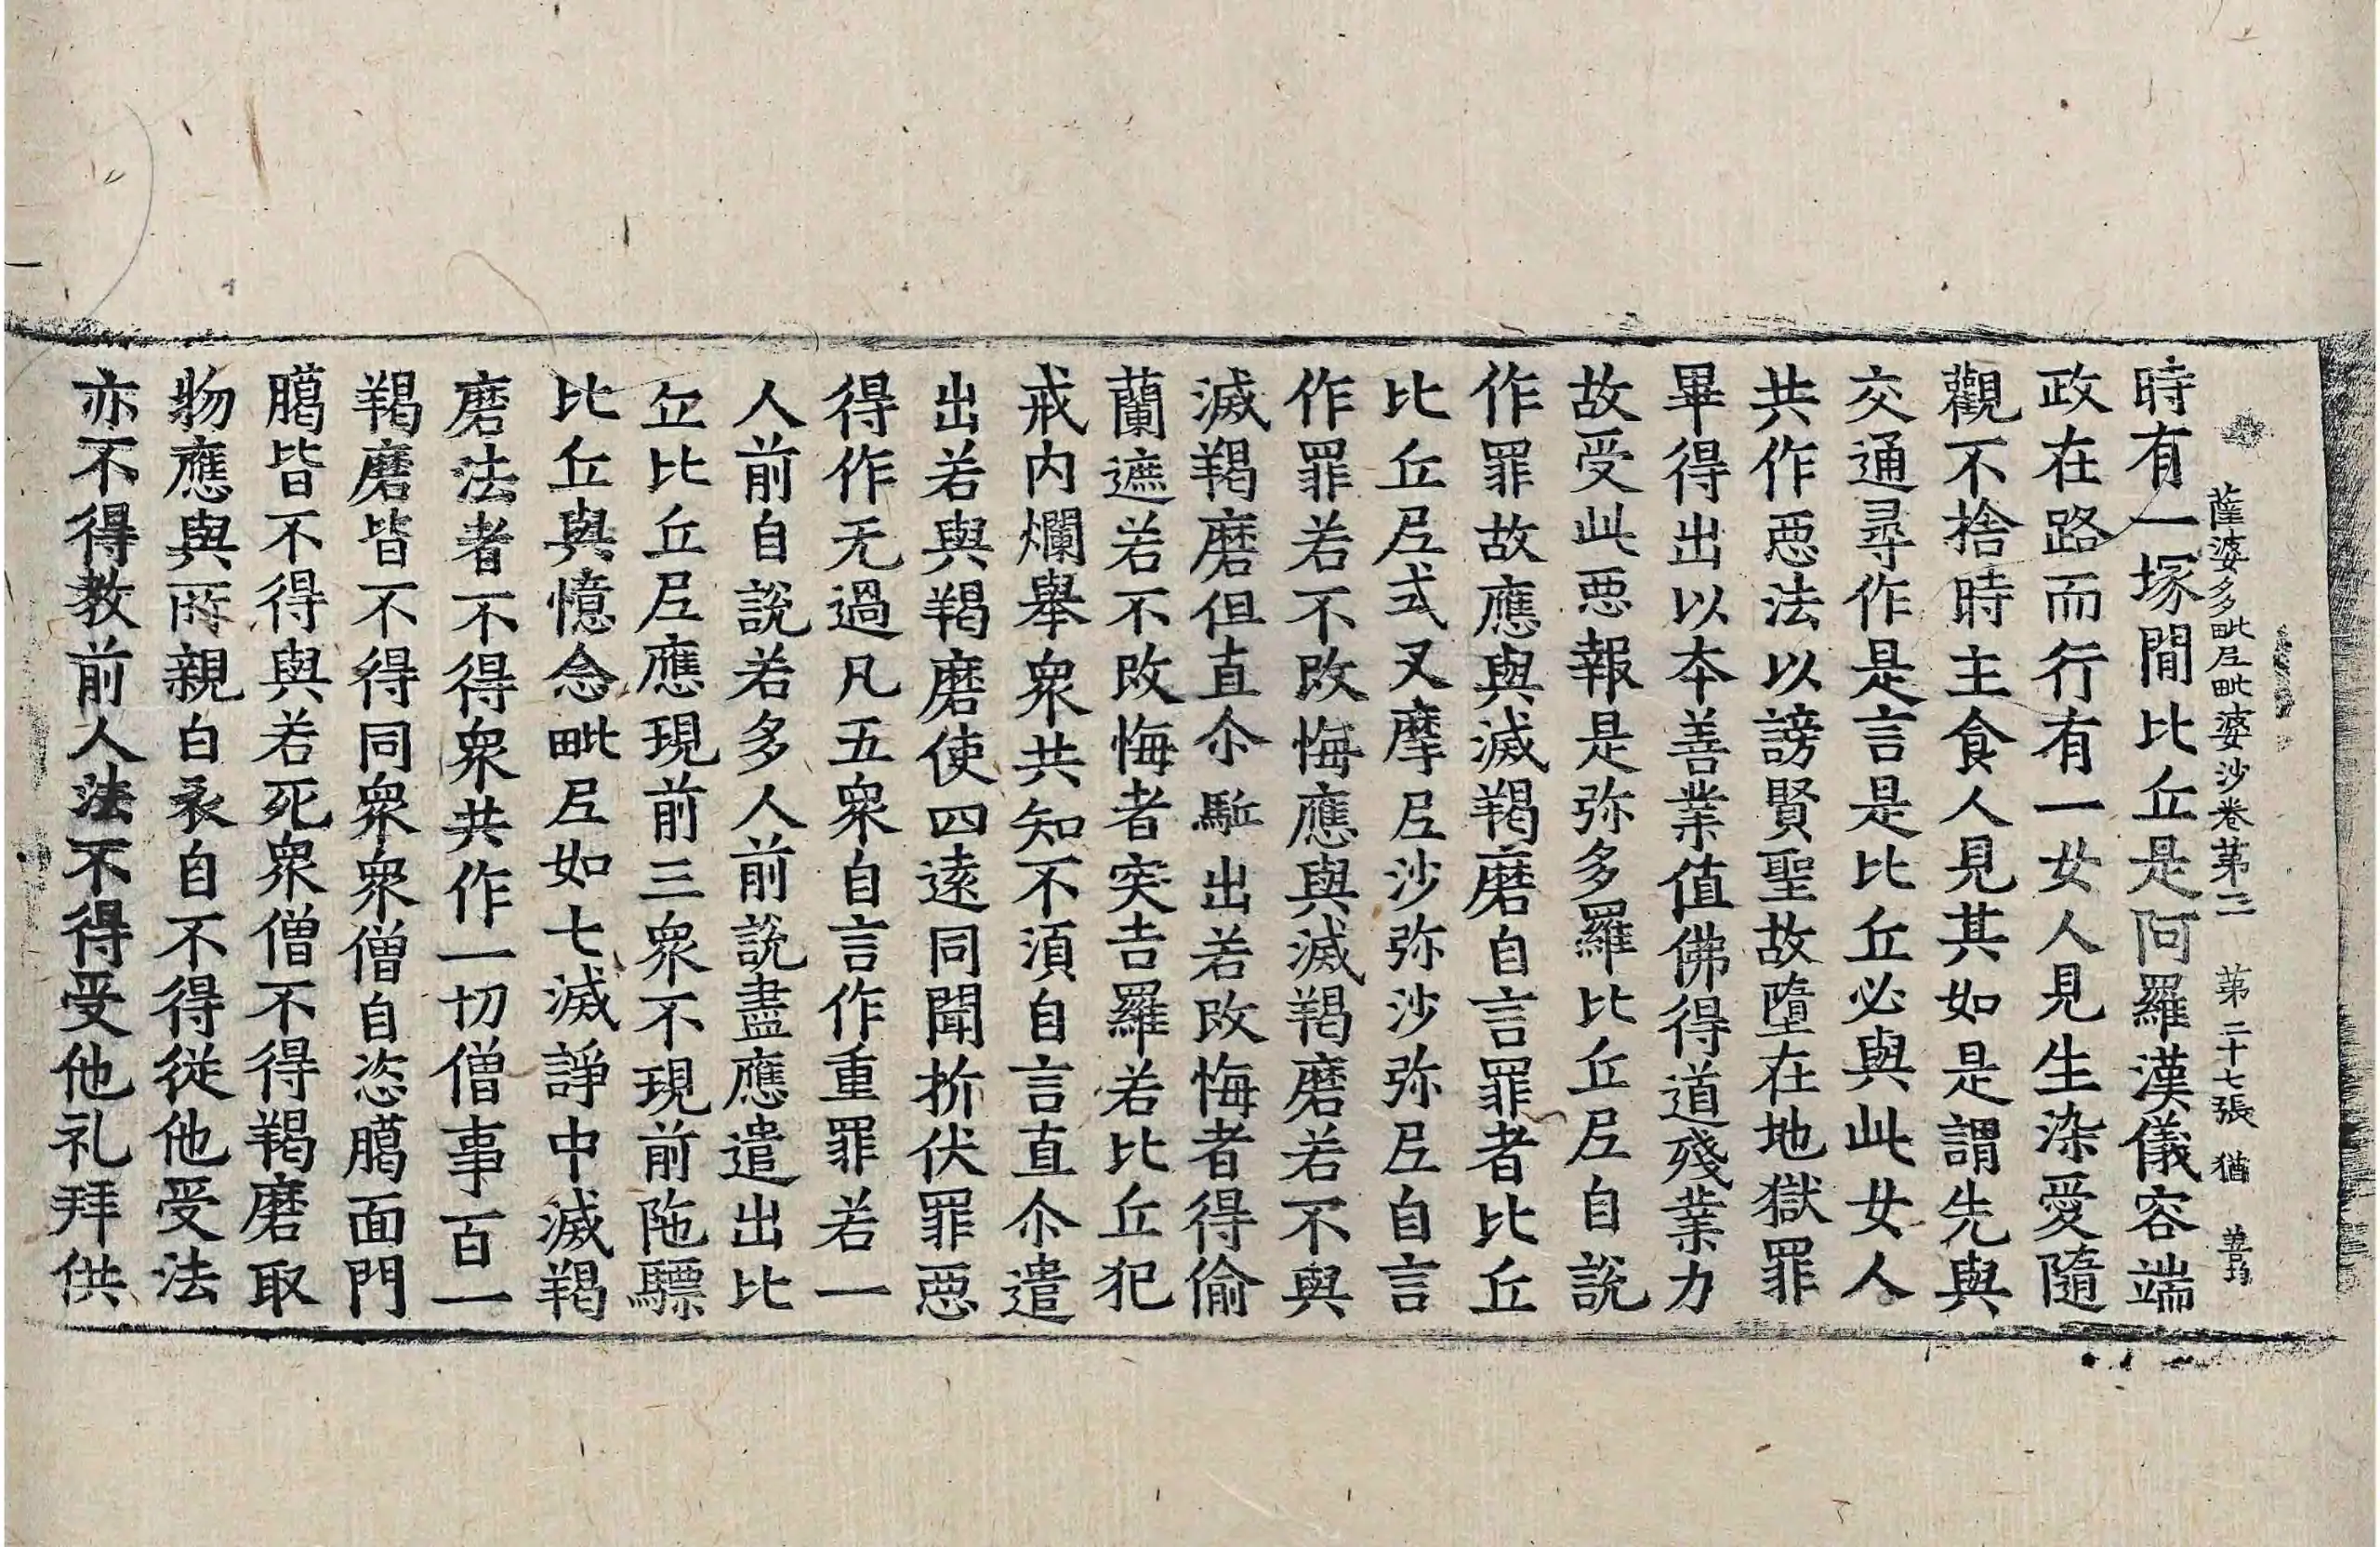 薩婆多毗尼毗婆沙卷第三 第二十七張 猶
時有一塚間比丘是阿羅漢儀容端
政在路而行有一女人見生染愛隨
觀不捨時主食人見其如是謂先與
交通尋作是言是比丘必與此女人
共作惡法以謗賢聖故墮在地獄罪
畢得出以本善業值佛得道殘業力
故受此惡報是弥多羅比丘尼自說
作罪故應與滅羯磨自言罪者比丘
比丘尼式叉摩尼沙弥沙弥尼自言
作罪若不改悔應與滅羯磨若不與
滅羯磨但直尒駈出若改悔者得偷
蘭遮若不改悔者突吉羅若比丘犯
戒內爛舉衆共知不須自言直尒遣
出若與羯磨使四遠同聞折伏罪惡
得作无過凡五衆自言作重罪若一
人前自說若多人前說盡應遣出比
丘比丘尼應現前三衆不現前陁驃
比丘與憶念毗尼如七滅諍中滅羯
磨法者不得衆共作一切僧事百一
羯磨皆不得同衆衆僧自恣臈面門
臈皆不得與若死衆僧不得羯磨取
物應與所親白衣自不得從他受法
亦不得教前人法不得受他礼拜供